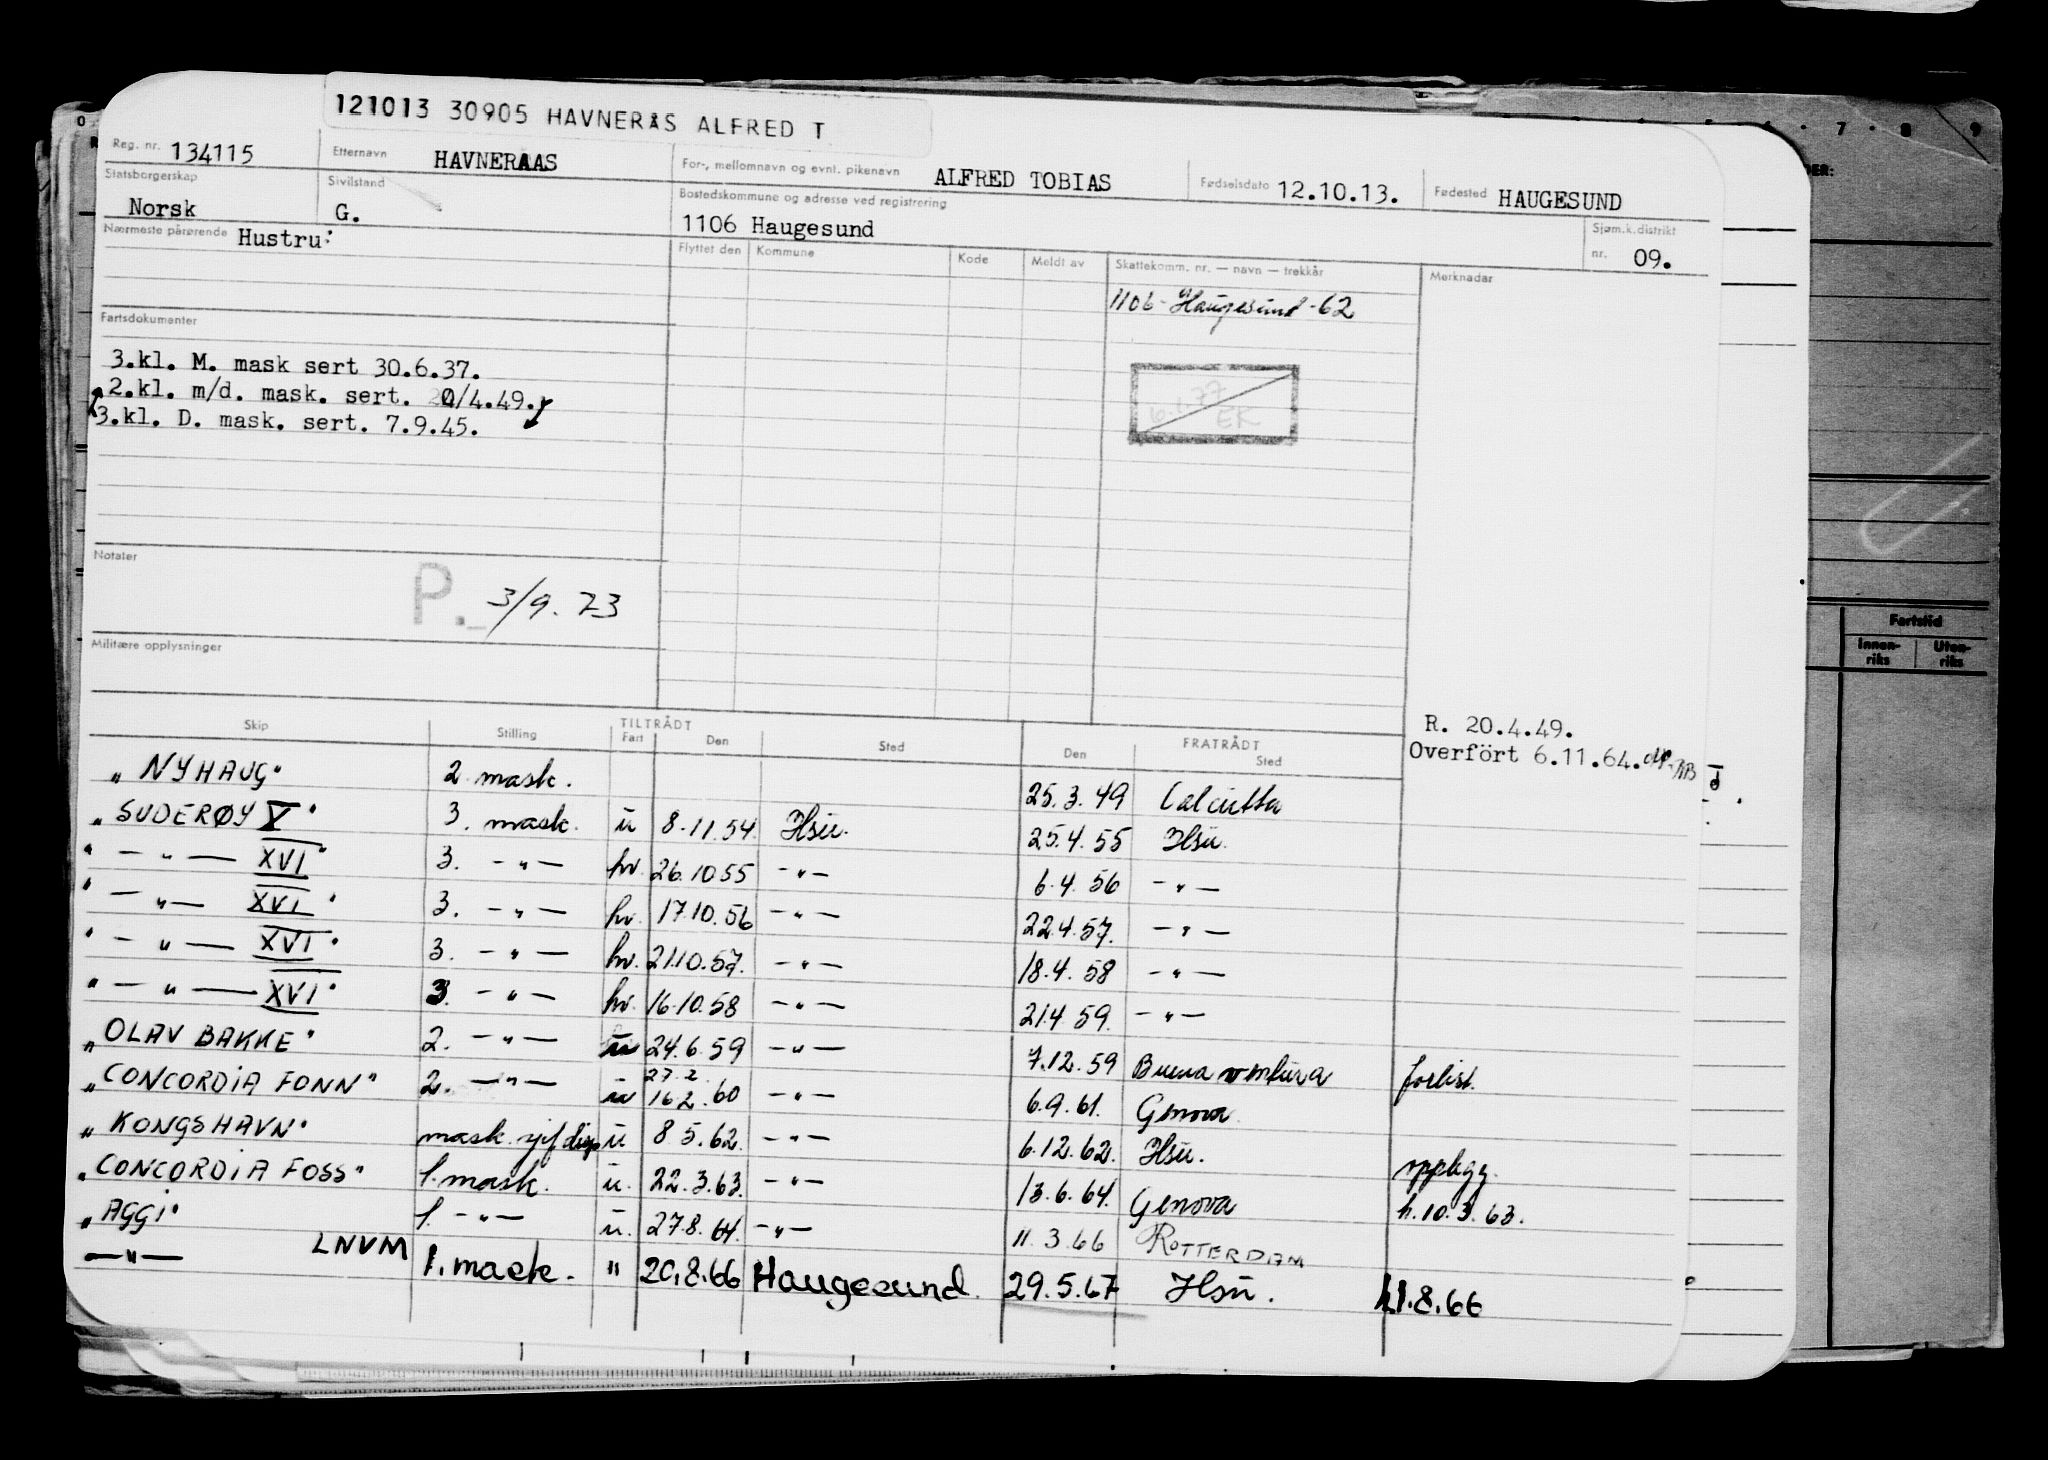 121013 30905 HAVNERÅS ALFRED T
Reg. nr. 134115 Etternavn HAVNERAAS For-, mellomnavn og evnt. pikenavn ALFRED TOBIAS Fødselsdato 12.10.13. Fødested HAUGESUND
Statsborgerskap Norsk Sivilstand G. Bostedskommune og adresse ved registrering 1106 Haugesund Sjøm.k.distrikt nr. 09.
Nærmeste pårørende Hustru:
Flyttet den Kommune Kode Meldt av Skattekomm. nr. — navn — trekkår Merknader
1106- Haugesund -62
Fartsdokumenter
3.kl. M. mask sert 30.6.37.
2.kl. m/d. mask. sert. 20/4.49.
3.kl. D. mask. sert. 7.9.45.
6.1.77
EK
Notater
P. 3/9. 73
Militære opplysninger
R. 20.4.49.
Overført 6.11.64.
Skip Stilling TILTRÅDT Fart Den Sted FRATRÅDT Den Sted
"NYHAUG" 2 mask. 25.3.49 Calcutta
"SUDERØY V" 3. mask. u 8.11.54. Hsu. 25.4.55 Hsu.
" — " — XVI" 3. — " — hv. 26.10.55 — " — 6.4.56 — " —
" — " — XVI" 3. — " — hv. 17.10.56 — " — 22.4.57. — " —
" — " — XVI" 3. — " — hv. 21.10.57. — " — 18.4.58 — " —
" — " — XVI" 3. — " — hv. 16.10.58 — " — 21.4.59. — " —
"OLAV BAKKE" 2. — " — u 24.6.59 — " — 7.12.59 Buenaventura forlist.
"CONCORDIA FONN" 2. — " — u 27.2. 16.2.60 — " — 6.9.61. Genova
"KONGSHAVN" mask. sjef disp u 8.5.62. — " — 6.12.62. Hsu. opplegg.
"CONCORDIA FOSS" 1. mask. u. 22.3.63. — " — 13.6.64. Genova h.10.3.63.
"AGGI" 1. — " — u. 27.8.64. — " — 11.3.66 ROTTERDAM
— " — LNVM 1. mask. " 20.8.66 Haugesund. 29.5.67 Hsu. h1.8.66
Fartstid
Innen-riks Uten-riks
7 8 9